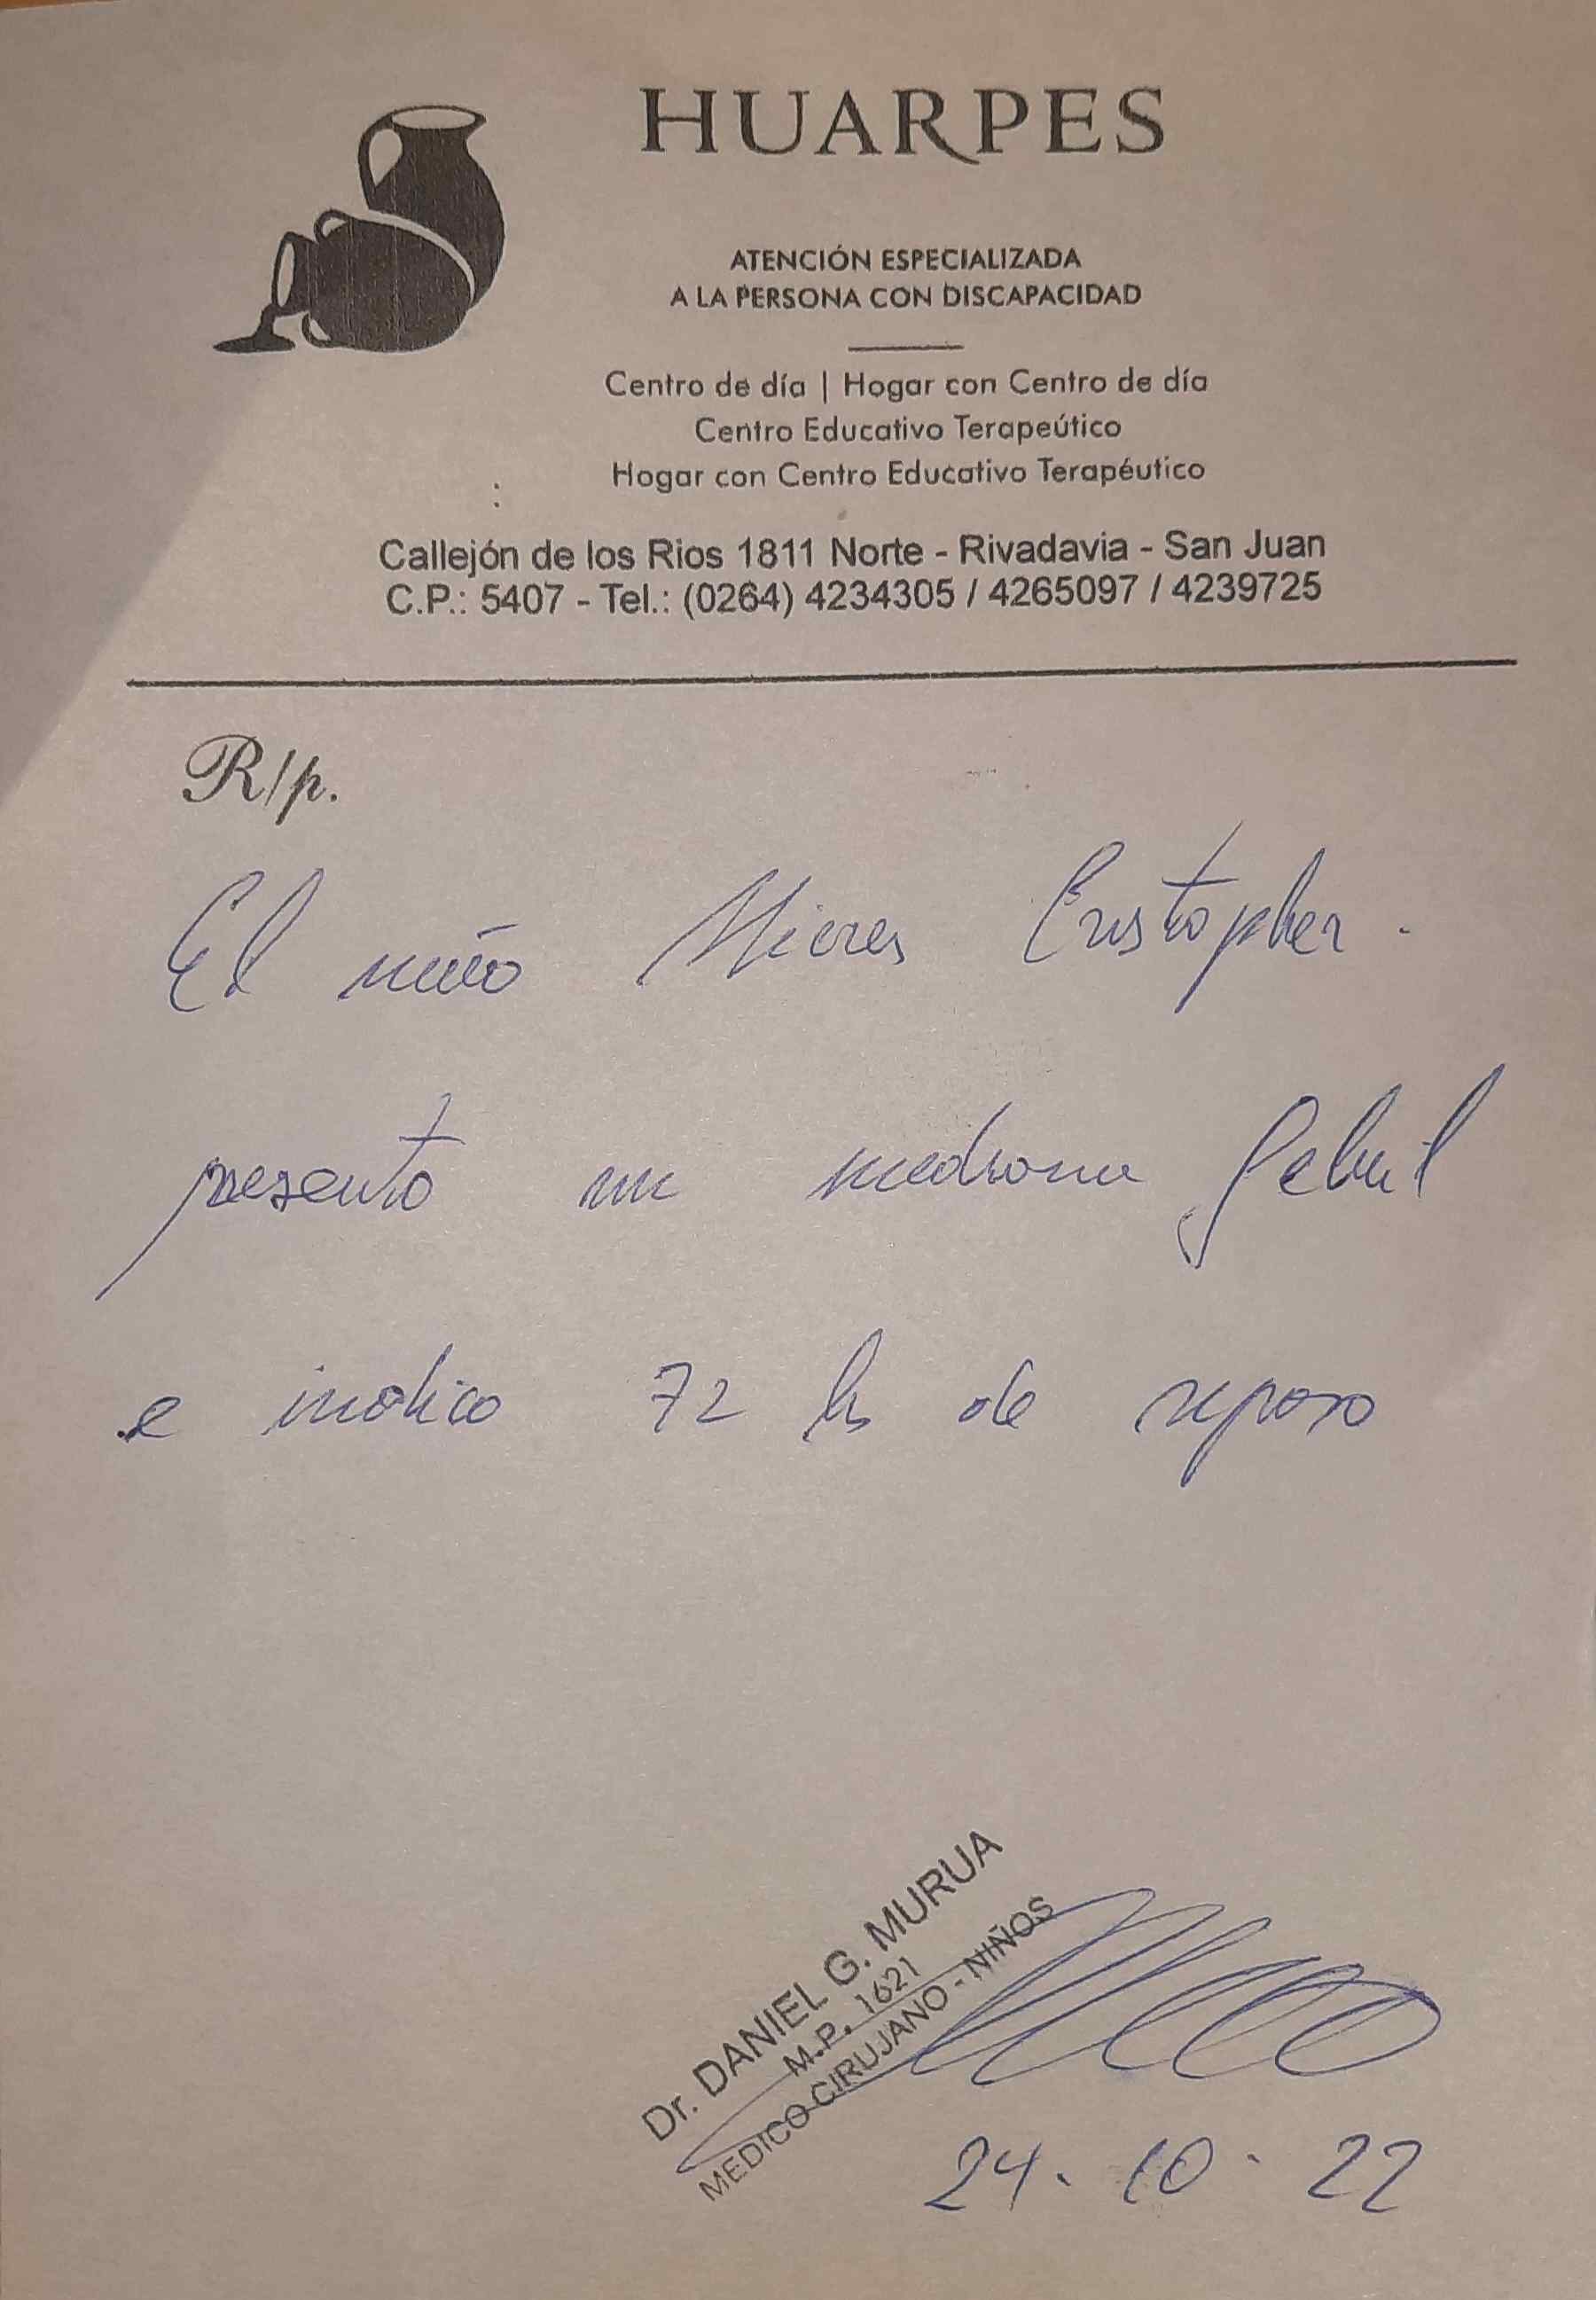 HUARPES
ATENCIÓN ESPECIALIZADA
A LA PERSONA CON DISCAPACIDAD
Centro de día | Hogar con Centro de día
Centro Educativo Terapeútico
Hogar con Centro Educativo Terapéutico
Callejón de los Rios 1811 Norte - Rivadavia - San Juan
C.P.: 5407 - Tel.: (0264) 4234305 / 4265097 / 4239725
R/p.
El niño Mieres Cristopher.
presento un febril
e indico 72 hs de reposo
Dr. DANIEL G. MURUA
M.P. 1621
MEDICO CIRUJANO - NIÑOS
24. 10. 22